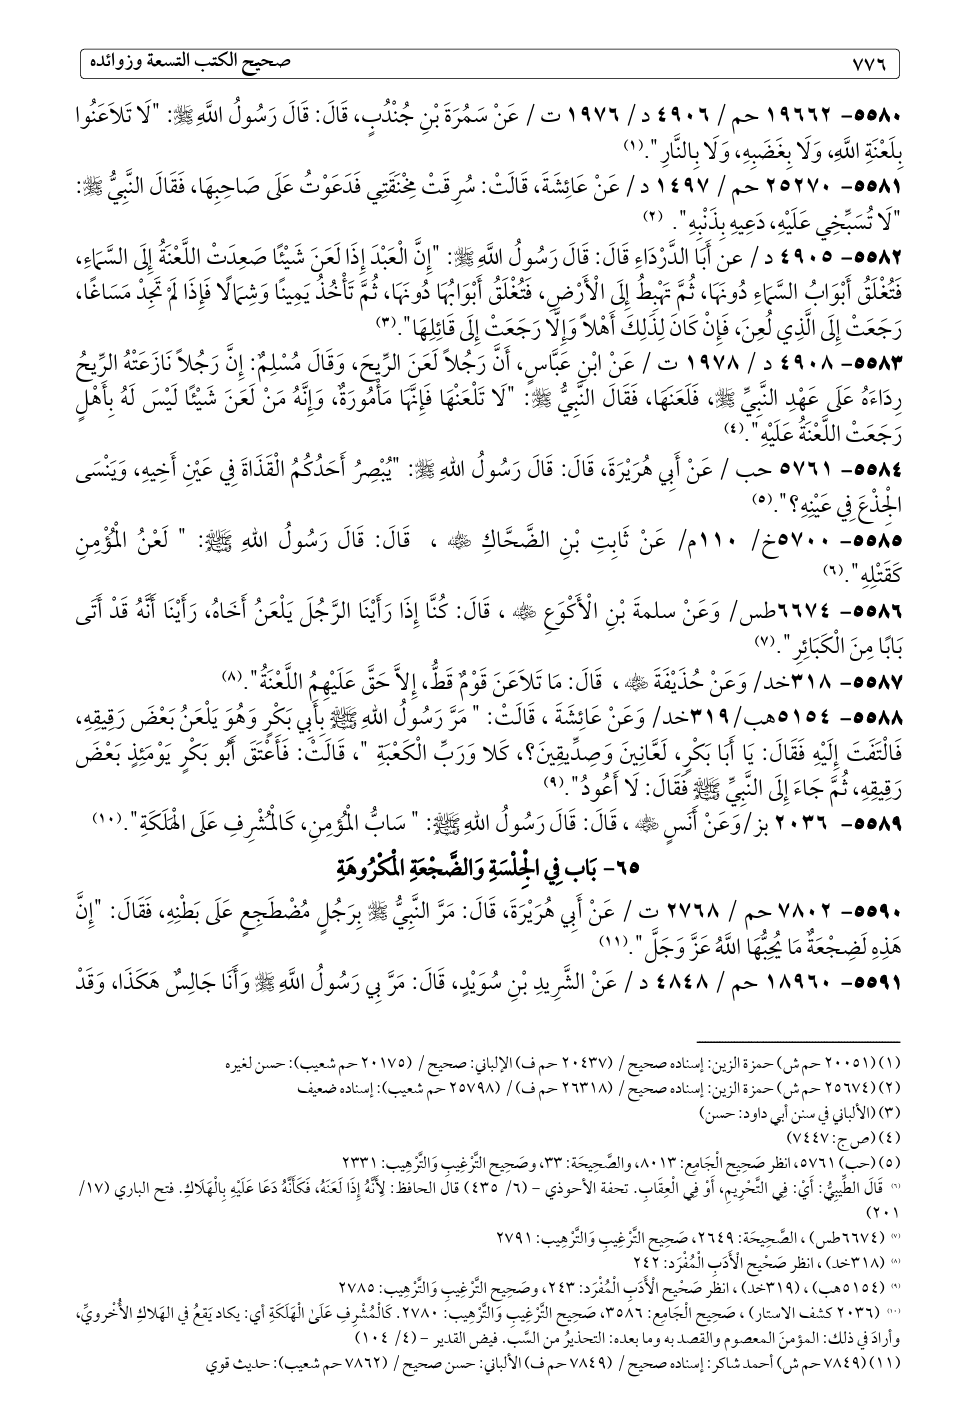 ٧٧٦
صحيح الكتب التسعة وزوائده
٥٥٨٠- ١٩٦٦٢ حم / ٤٩٠٦ د/ ١٩٧٦ ت / عَنْ سَمُرَةَ بْنِ جُنْدُبٍ، قَالَ: قَالَ رَسُولُ اللَّهِ ﷺ: "لَا تَلَاعَنُوا
بِلَعْنَةِ اللَّهِ، وَلَا بِغَضَبِهِ، وَلَا بِالنَّارِ ".(١)
٥٥٨١- ٢٥٢٧٠ حم / ١٤٩٧ د/ عَنْ عَائِشَةَ، قَالَتْ: سُرِقَتْ مِخْنَقَتِي فَدَعَوْتُ عَلَى صَاحِبِهَا، فَقَالَ النَّبِيُّ ﷺ:
"لَا تُسَبِّخِي عَلَيْهِ، دَعِيهِ بِذَنْبِهِ". (٢)
٥٥٨٢- ٤٩٠٥ د / عن أَبَا الدَّرْدَاءِ قَالَ: قَالَ رَسُولُ اللَّهِ ﷺ: "إِنَّ الْعَبْدَ إِذَا لَعَنَ شَيْئًا صَعِدَتْ اللَّعْنَةُ إِلَى السَّمَاءِ،
فَتُغْلَقُ أَبْوَابُ السَّمَاءِ دُونَهَا، ثُمَّ تَهْبِطُ إِلَى الْأَرْضِ، فَتُغْلَقُ أَبْوَابُهَا دُونَهَا، ثُمَّ تَأْخُذُ يَمِينًا وَشِمَالًا فَإِذَا لَمْ تَجِدْ مَسَاغًا،
رَجَعَتْ إِلَى الَّذِي لُعِنَ، فَإِنْ كَانَ لِذَلِكَ أَهْلاً وَإِلَّا رَجَعَتْ إِلَى قَائِلِهَا".(٣)
٥٥٨٣- ٤٩٠٨ د / ١٩٧٨ ت / عَنْ ابْنِ عَبَّاسٍ، أَنَّ رَجُلاً لَعَنَ الرِّيحَ، وَقَالَ مُسْلِمٌ: إِنَّ رَجُلاً نَازَعَتْهُ الرِّيحُ
رِدَاءَهُ عَلَى عَهْدِ النَّبِيِّ ﷺ، فَلَعَنَهَا، فَقَالَ النَّبِيُّ ﷺ: "لَا تَلْعَنْهَا فَإِنَّهَا مَأْمُورَةٌ، وَإِنَّهُ مَنْ لَعَنَ شَيْئًا لَيْسَ لَهُ بِأَهْلٍ
رَجَعَتْ اللَّعْنَةُ عَلَيْهِ".(٤)
٥٥٨٤- ٥٧٦١ حب / عَنْ أَبِي هُرَيْرَةَ، قَالَ: قَالَ رَسُولُ اللهِ ﷺ: "يُبْصِرُ أَحَدُكُمُ الْقَذَاةَ فِي عَيْنِ أَخِيهِ، وَيَنْسَى
الْجِذْعَ فِي عَيْنِهِ؟".(٥)
٥٥٨٥- ٥٧٠٠خ/ ١١٠م/ عَنْ ثَابِتِ بْنِ الضَّحَّاكِ ﵁ ، قَالَ: قَالَ رَسُولُ اللهِ ﷺ: " لَعْنُ الْمُؤْمِنِ
كَقَتْلِهِ".(٦)
٥٥٨٦- ٦٦٧٤طس/ وَعَنْ سلمةَ بْنِ الْأَكْوَعِ ﵁ ، قَالَ: كُنَّا إِذَا رَأَيْنَا الرَّجُلَ يَلْعَنُ أَخَاهُ، رَأَيْنَا أَنَّهُ قَدْ أَتَى
بَابًا مِنَ الْكَبَائِرِ ".(٧)
٥٥٨٧- ٣١٨خد/ وَعَنْ حُذَيْفَةَ ﵁ ، قَالَ: مَا تَلاَعَنَ قَوْمٌ قَطُّ، إِلاَّ حَقَّ عَلَيْهِمُ اللَّعْنَةُ".(٨)
٥٥٨٨- ٥١٥٤هب/ ٣١٩خد/ وَعَنْ عَائِشَةَ ، قَالَتْ: " مَرَّ رَسُولُ اللهِ ﷺ بِأَبِي بَكْرٍ وَهُوَ يَلْعَنُ بَعْضَ رَقِيقِهِ،
فَالْتَفَتَ إِلَيْهِ فَقَالَ: يَا أَبَا بَكْرٍ، لَعَّانِينَ وَصِدِّيقِينَ؟، كَلا وَرَبِّ الْكَعْبَةِ "، قَالَتْ: فَأَعْتَقَ أَبُو بَكْرٍ يَوْمَئِذٍ بَعْضَ
رَقِيقِهِ، ثُمَّ جَاءَ إِلَى النَّبِيِّ ﷺ فَقَالَ: لَا أَعُودُ".(٩)
٥٥٨٩- ٢٠٣٦ بز/وَعَنْ أَنَسٍ ﵁ ، قَالَ: قَالَ رَسُولُ اللهِ ﷺ: " سَابُّ الْمُؤْمِنِ، كَالْمُشْرِفِ عَلَى الْهَلَكَةِ".(١٠)
٦٥- بَاب فِي الْجِلْسَةِ وَالضَّجْعَةِ الْمَكْرُوهَةِ
٥٥٩٠- ٧٨٠٢ حم / ٢٧٦٨ ت / عَنْ أَبِي هُرَيْرَةَ، قَالَ: مَرَّ النَّبِيُّ ﷺ بِرَجُلٍ مُضْطَجِعٍ عَلَى بَطْنِهِ، فَقَالَ: "إِنَّ
هَذِهِ لَضِجْعَةٌ مَا يُحِبُّهَا اللَّهُ عَزَّ وَجَلَّ".(١١)
٥٥٩١- ١٨٩٦٠ حم / ٤٨٤٨ د / عَنْ الشَّرِيدِ بْنِ سُوَيْدٍ، قَالَ: مَرَّ بِي رَسُولُ اللَّهِ ﷺ وَأَنَا جَالِسٌ هَكَذَا، وَقَدْ
(١) (٢٠٠٥١ حم ش) حمزة الزين: إسناده صحيح / (٢٠٤٣٧ حم ف) الإلباني: صحيح / (٢٠١٧٥ حم شعيب): حسن لغيره
(٢) (٢٥٦٧٤ حم ش) حمزة الزين: إسناده صحيح / (٢٦٣١٨ حم ف)/ (٢٥٧٩٨ حم شعيب): إسناده ضعيف
(٣) (الألباني في سنن أبي داود: حسن)
(٤) (ص ج: ٧٤٤٧)
(٥) (حب) ٥٧٦١، انظر صَحِيح الْجَامِع: ٨٠١٣، والصَّحِيحَة: ٣٣، وصَحِيح التَّرْغِيبِ وَالتَّرْهِيب: ٢٣٣١
(٦) قَالَ الطِّيبِيُّ: أَيْ: فِي التَّحْرِيمِ، أَوْ فِي الْعِقَابِ. تحفة الأحوذي - (٦/ ٤٣٥) قال الحافظ: لِأَنَّهُ إِذَا لَعَنَهُ، فَكَأَنَّهُ دَعَا عَلَيْهِ بِالْهَلَاكِ. فتح الباري (١٧/
٢٠١)
(٧) (٦٦٧٤طس) ، الصَّحِيحَة: ٢٦٤٩، صَحِيح التَّرْغِيبِ وَالتَّرْهِيب: ٢٧٩١
(٨) (٣١٨خد) ، انظر صَحْيح الْأَدَبِ الْمُفْرَد: ٢٤٢
(٩) (٥١٥٤هب) ، (٣١٩خد) ، انظر صَحْيح الْأَدَبِ الْمُفْرَد: ٢٤٣، وصَحِيح التَّرْغِيبِ وَالتَّرْهِيب: ٢٧٨٥
(١٠) (٢٠٣٦ كشف الاستار) ، صَحِيح الْجَامِع: ٣٥٨٦، صَحِيح التَّرْغِيبِ وَالتَّرْهِيب: ٢٧٨٠. كَالْمُشْرِفِ عَلَىٰ الْهَلَكَةِ أي: يكاد يَقعُ في الهَلاكِ الأُخْرويِّ،
وأرادَ في ذلك: المؤمنَ المعصومَ والقصد به وما بعده: التحذيرُ من السَّب. فيض القدير - (٤/ ١٠٤)
(١١) (٧٨٤٩ حم ش) أحمد شاكر: إسناده صحيح / (٧٨٤٩ حم ف) الألباني: حسن صحيح / (٧٨٦٢ حم شعيب): حديث قوي